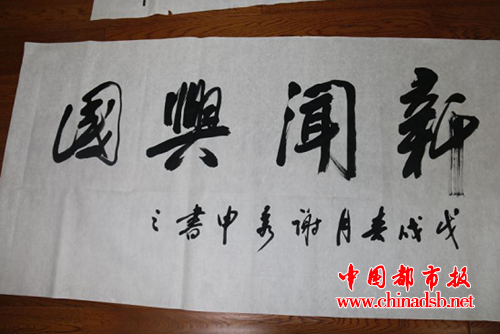 新聞興國
戊戌春月谢秀申書之
中国都市报
www.chinadsb.net